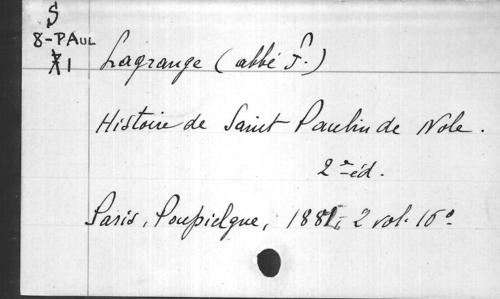 S
8-PAUL
1
Lagrange (abbé F.)
Histoire de Saint Paulin de Nole.
2e éd.
Paris, Poupielgue, 1882, 2 vol. 16°